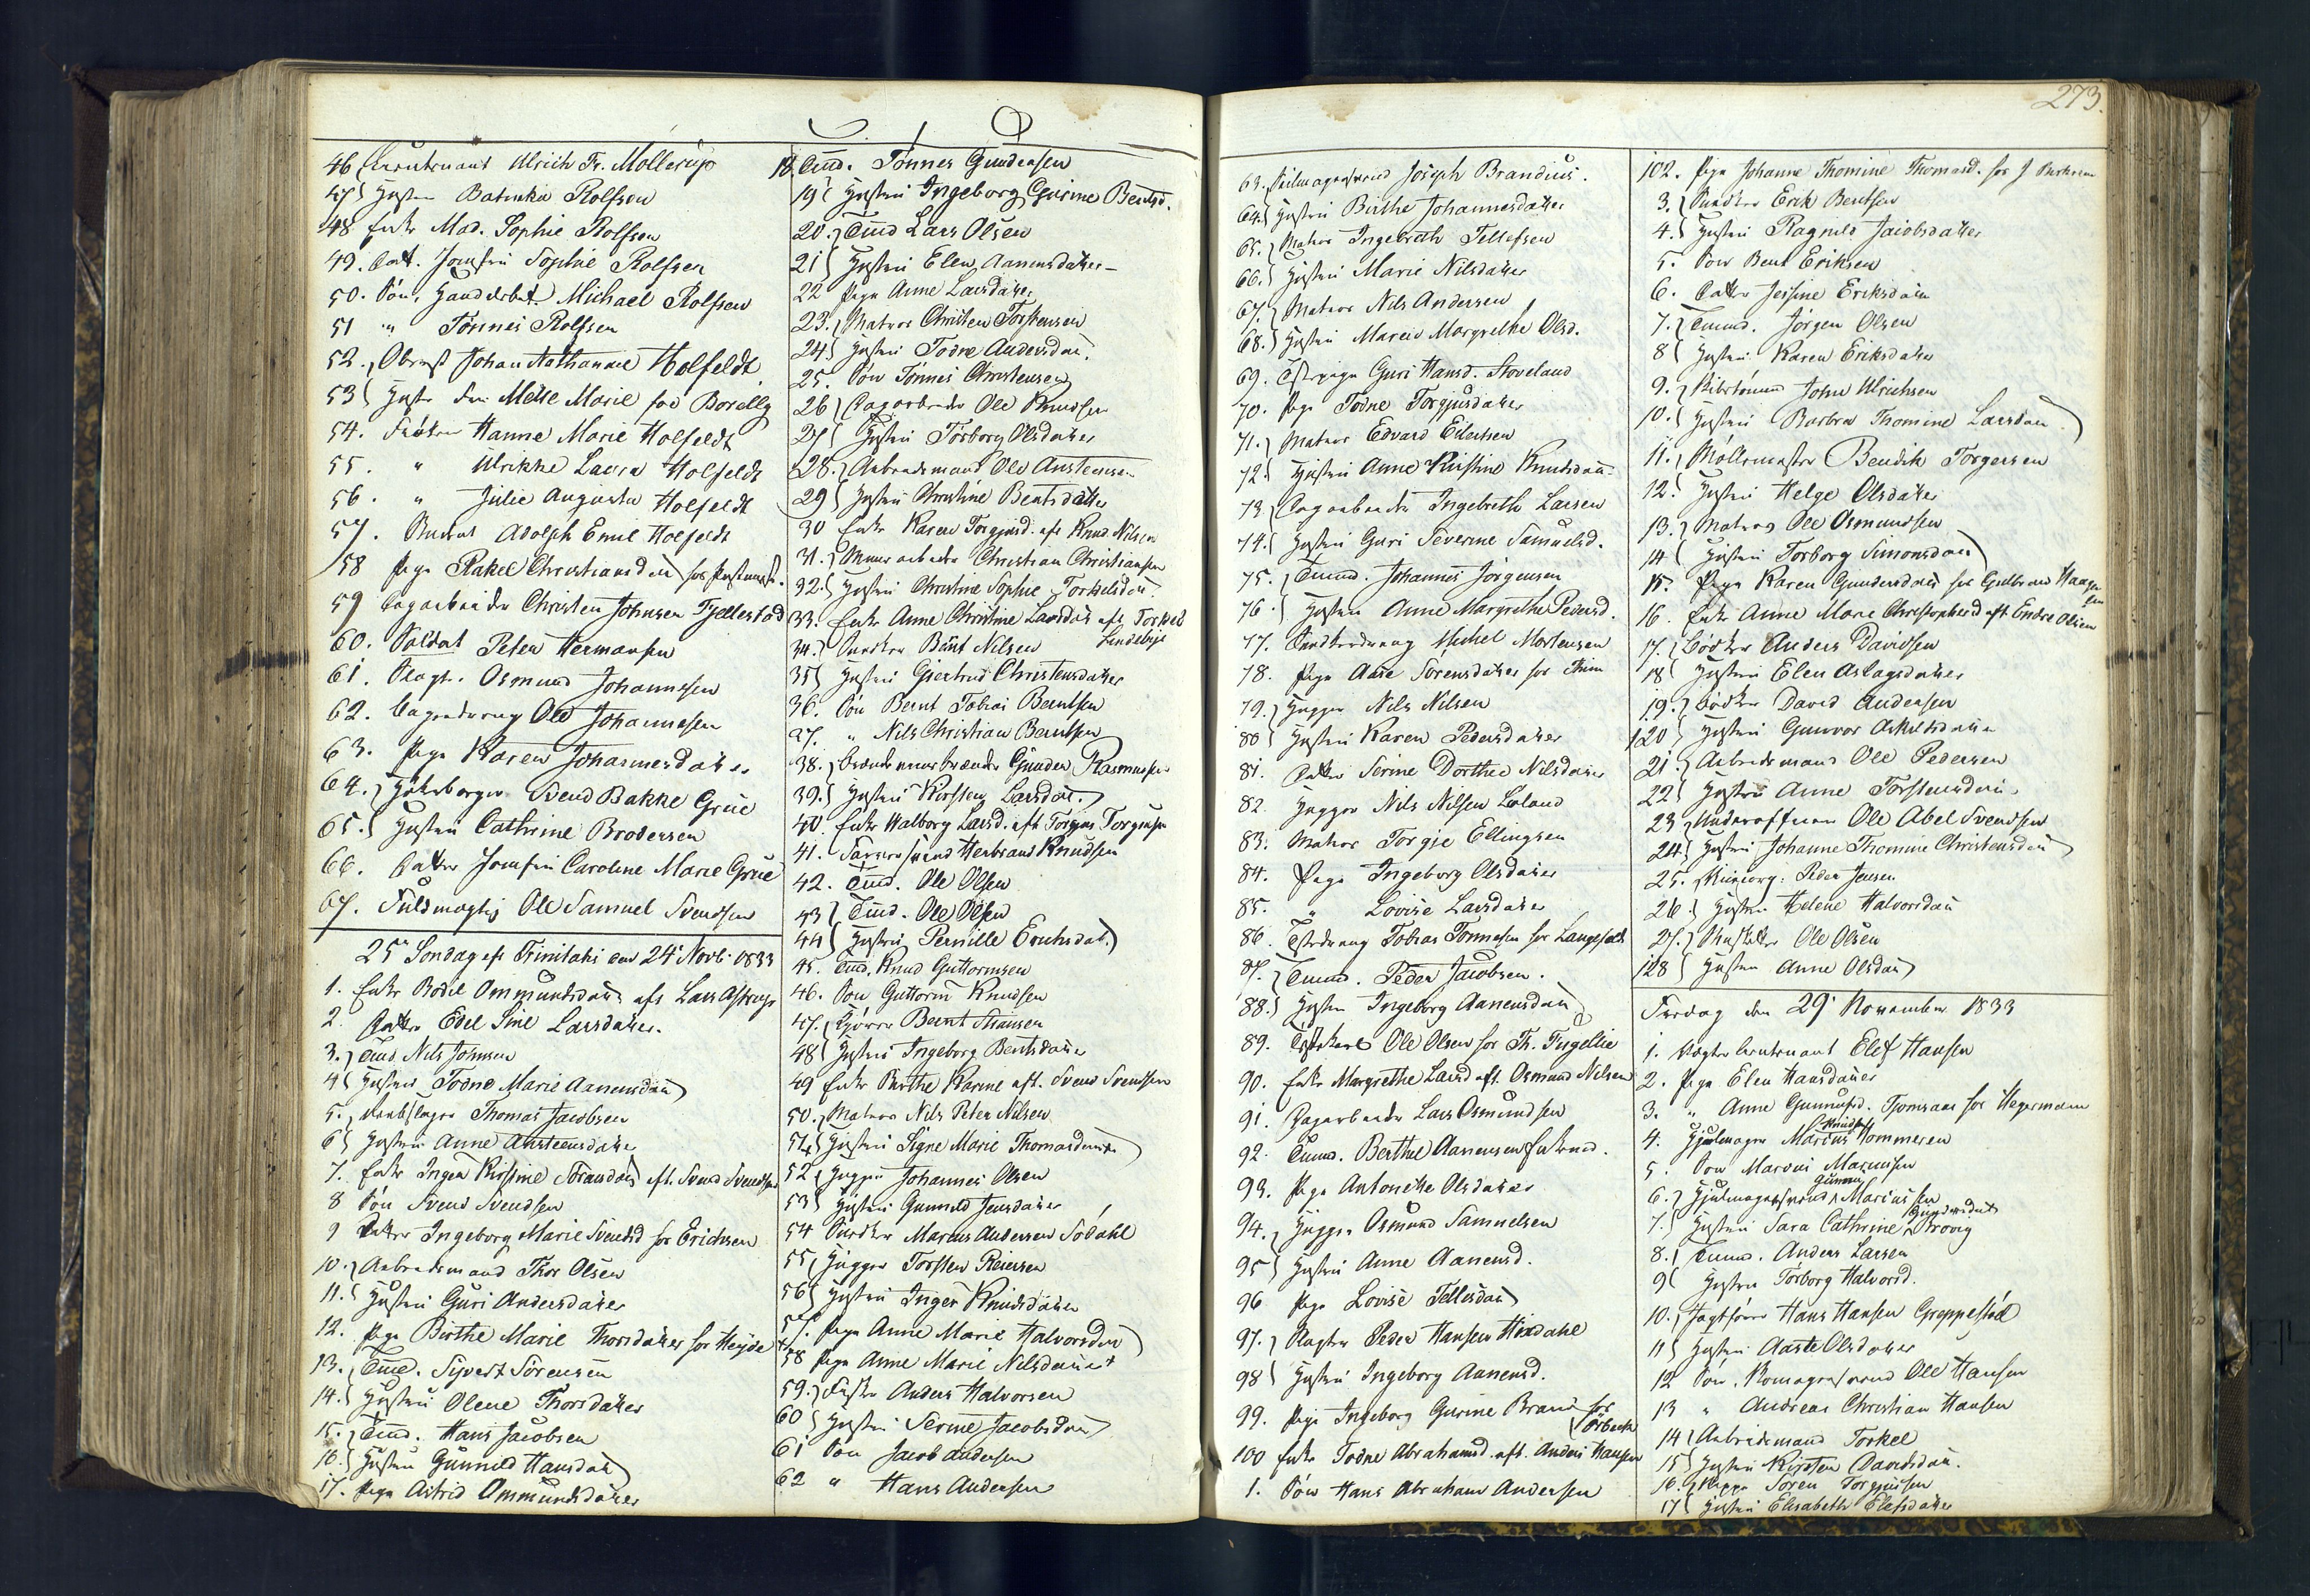 46 Lieutenant Ulrich Fr. Mollerup
47 Hustru Batseba Rolfsen
48 Enke Mad. Sophie Rolfsen
49. Datt. Jomfru Sophie Rolfsen
50. Søn, Handelsbet. Michael Rolfsen
51 " Tønnes Rolfsen
52. Oberst Johan Nathanael Holfeldt
53 Hustru Fru Mette Marie fød Borelly
54. Frøken Hanne Marie Holfeldt
55. " Ulrikke Laura Holfeldt
56. " Julie Augusta Holfeldt
57. Student Adolph Emil Holfeldt
58 Pige Rakel Christiansdatt
59 Dagarbeider Christen Johnsen Tjellestad
60. Soldat Peter Hermansen
61. Slagt. Osmund Johannesen
62. Ole Johannesen
63. Pige Karen Johannesdatter
64. Svend Bakke Grüe
65. Hustru Cathrine Brodersen
66. Datter Jomfru Caroline Marie Grüe
67. Fuldmægtig Ole Samuel Svendsen
25de Søndag eft Trinitatis den 24de Novbr 1833
1. Enke Bodil Ommundsdatt eft Lars
2. Datter Edel Sine Larsdatter.
3. Tmd. Nils Johnsen
4 Hustru Todne Marie Aanensdatt
5. Rebslager Thomas Jacobsen
6 Hustru Anne Austensdatter
7. Enke Inger Kirstine eft. Svend Svendsen
8 Søn Svend Svendsen
9 Datter Ingeborg Marie Svendsd for Erichsen
10. Arbeidsmand Thor Olsen
11. Hustru Guri Andersdatter
12. Pige Birthe Marie Thorsdatter for Heyde
13. Tmd. Syvert Sørensen
14. Hustru Olene Thorsdatter
15. Tmd. Hans Jacobsen
16. Hustru Gunnild Hansdatt
17. Pige Astrid Ommundsdatter
18. Tmd. Tønnes Gundersen
19 Hustru Ingeborg Gurine Bentsd.
20. Tmd Lars Olsen
21 Hustru Elen Aanensdatter
22 Pige Anne Larsdatter
23. Matros Christen Torstensen
24. Hustru Todne Andersdatt.
25. Søn Tønnes Christensen
26 Dagarbeider Ole Knudsen
27 Hustru Torborg Olsdatter
28. Arbeidsmand Ole Austensen
29 Hustru Christine Bentsdatter
30 Enke Karen Torgjusd. eft Knud Nilsen
31. Muurarbeider Christian Christiansen
32. Hustru Christine Sophie Torkelsdatt.
33. Enke Anne Christine Larsdatt eft Torkel
Lindebye
34. Snedker Bent Nilsen
35 Hustru Giertrud Christensdatter
36. Søn Bernt Tobias Berntsen
37. " Nils Christian Berntsen
38. Gunder Rasmussen
39. Hustru Kirsten Larsdatt.
40. Enke Walborg Larsd. eft Torgius Torgiusen
41. Herbrand Knudsen
42. Tmd. Ole Olsen
43 Tmd. Ole Olsen
44 Hustru Pernille Erichsdat.
45. Tmd. Knud Guttormsen
46. Søn Guttorm Knudsen
47. Bernt Hansen
48 Hustru Ingeborg Bentsdatter
49 Enke Birthe Karine eft. Svend Svendsen
50. Matros Nils Peter Nilsen
51 Hustru Signe Marie Thomasdatter
52 Hugger Johannes Olsen
53 Hustru Gunnild Jensdatter
54 Snedker Marcus Andersen Sødahl
55, Hugger Torsten Reiersen
56 Hustru Inger Knudsdatter
57. Pige Anne Marie Halvorsdatt
58 Pige Anne Marie Nilsdatter
59. Fisker Anders Halvorsen
60 Hustru Serine Jacobsdatt
61 Søn Jacob Andersen
62 " Hans Andersen
273.
63. Seilmagersvend Joseph Brandius.
64. Hustru Birthe Johannesdatter
65. Matros Ingebreth Tellefsen
66. Hustru Marie Nilsdatter
67. Matros Nils Andersen
68. Hustru Maren Margrethe Olsd.
69. Tstpige Guri Hansd. Stoveland
70. Pige Todne Torgjusdatter
71. Matros Edvard Eilertsen
72. Hustru Anne Kirstine Knudsdatt.
73 Dagarbeider Ingebreth Larsen
74. Hustru Guri Severine Samuelsd.
75. Tmd. Johannes Jørgensen
76. Hustru Anne Margrethe Pedersd.
77. Michel Mortensen
78. Pige Aase Sørensdatter for
79. Hugger Nils Nilsen
80 Hustru Karen Pedersdatter
81. Datter Serine Dorthea Nilsdatter
82 Hugger Nils Nilsen Loland
83. Matros Torgie Ellingsen
84. Pige Ingeborg Olsdatter
85. " Lovise Larsdatter
86. Tstdreng Tobias Tønnesen for Langfeldt
87. Tmd. Peder Jacobsen.
88. Hustru Ingeborg Aanensdatt
89. Tstkarl Ole Olsen for Th. Fugellie
90. Enke Margrethe Larsd eft. Osmund Nilsen
91. Dagarbeider Lars Osmundsen
92. Tmd. Berthel Aanensen Enkemd.
93. Pige Antonette Olsdatter
94. Hugger Osmund Samuelsen
95 Hustru Anne Aanensd.
96 Pige Lovise Tellisdatt
97. Slagter Peder Hansen Hixdahl
98 Hustru Ingeborg Aanensd.
99. Pige Ingeborg Gurine Brand for
Ørbech
100 Enke Todne Abrahamsd. eft. Anders Hansen
1. Søn Hans Abraham Andersen
102. Pige Johanne Thomine Thomasd. for J
3. Snedker Erik Bentsen
4. Hustru Ragnild Jacobsdatter
5. Søn Bent Eriksen
6. Datter Jessine Eriksdatter
7. Tmd. Jørgen Olsen
8 Hustru Karen Eriksdatter
9. John Ulrichsen
10. Hustru Barbra Thomine Larsdatt
11. Møllemester Bendik Torgersen
12. Hustru Helge Olsdatter
13. Matros Ole Osmundsen
14 Hustru Torborg Simonsdatt
15. Pige Karen Gundersdatt for Gulbrand Haagen
sen
16. Enke Anne Marie Christophersd eft Endre Olsen
17. Bødker Anders Davidsen
18 Hustru Elen Aslagsdatter
19. Bødker David Andersen
120 Hustru Gunvor
21. Arbeidsmand Ole Pedersen
22 Hustru Anne Torstensdatt.
23 Underofficeer Ole Abel Svendsen
24. Hustru Johanne Thomine Christensdatt
25. Peder Jensen
26. Hustru Helene Halvorsdatt
27. Ole Olsen
128 Hustru Anne Olsdatt
Fredag den 29de November 1833
1. Vagter Lieutenant Elef Hansen
2. Pige Elen Hansdatter
3. " Anne Gunnufsd. Tjomsaas for Hegermann
Knudsen
4. Hjulmager Marcus Tommesen
5. Søn Marcus Marcussen
Gunni
6. Hjulmagersvend Marcussen
Gundersdatt
7. Hustru Sara Cathrine Brovig
8. Tmd. Anders Larsen
9 Hustru Torborg Halvorsd.
10. Jagtfører Hans Hansen Greppestad
11 Hustru Aaste Olsdatter
12 Søn. Skomagersvend Ole Hansen
13 " Andreas Christian Hansen
14 Arbeidsmand Torkel
15 Hustru Kirsten Davidsdatt.
16. Søren Torgjussen
17 Hustru Elisabeth Elefsdatter